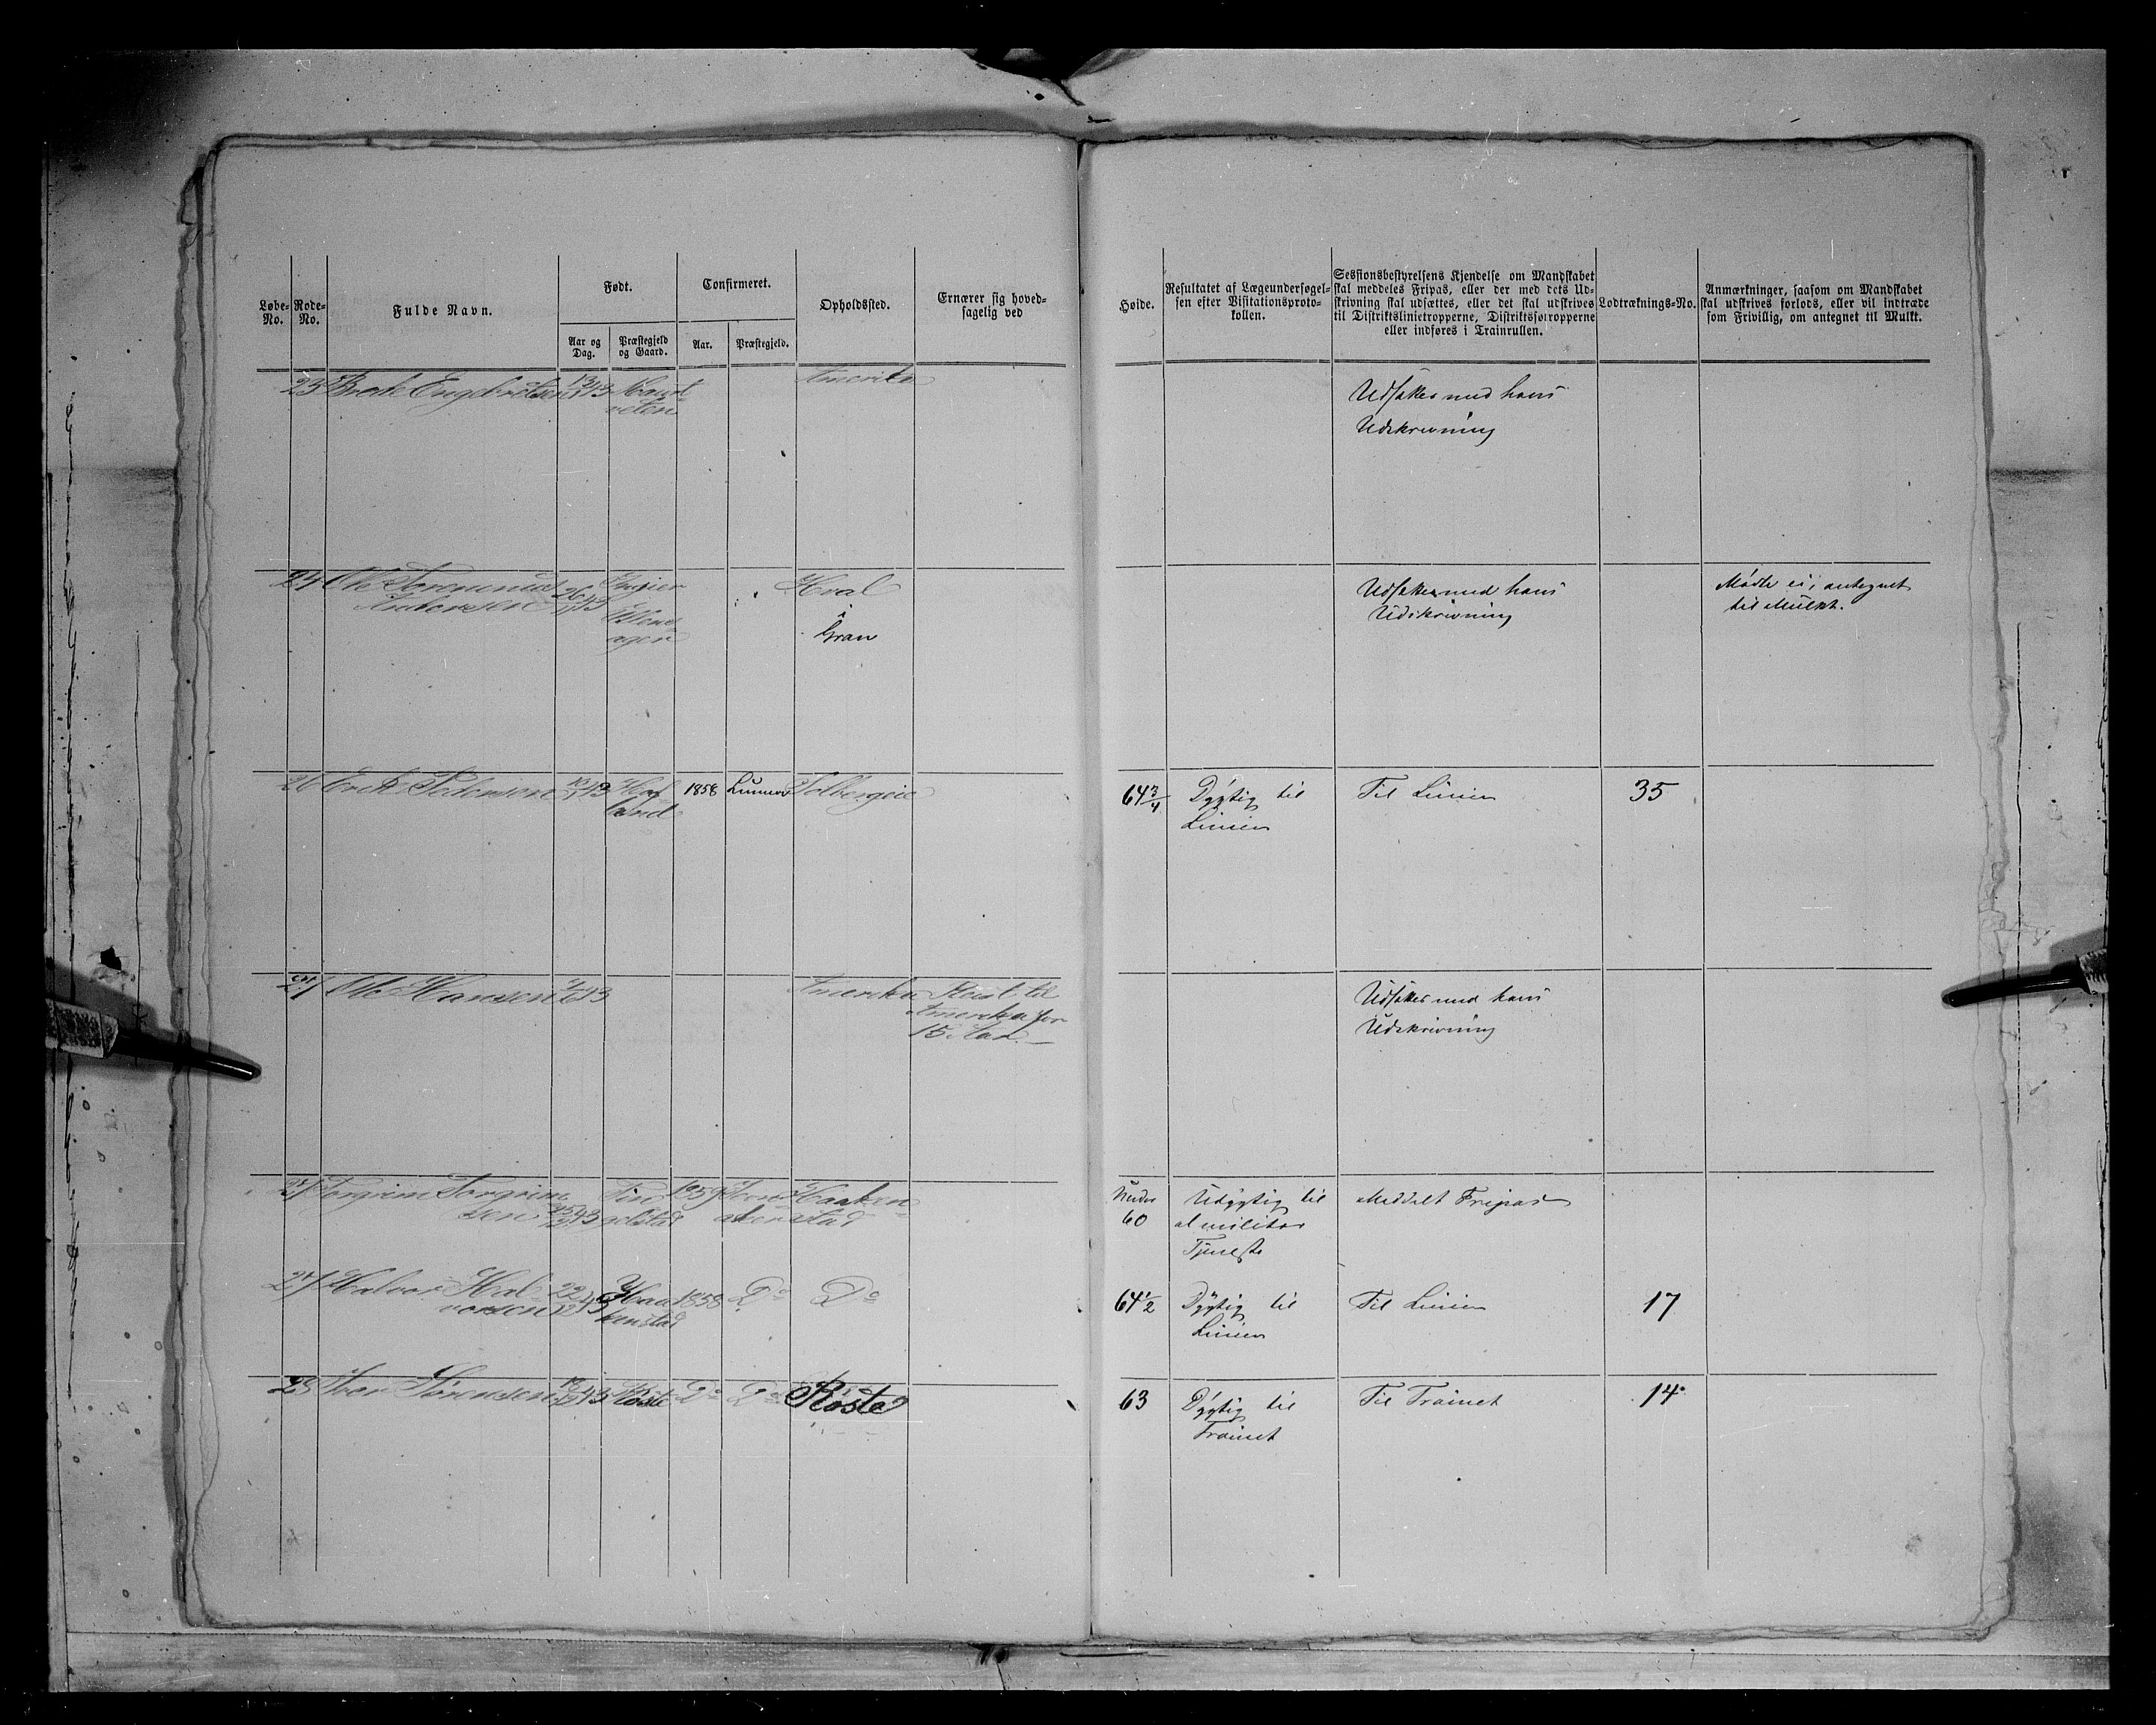 Løbe-No.
Rode-No.
Fulde Navn.
Født.
Aar og Dag.
Præstegjeld og Gaard.
Confirmeret.
Aar.
Præstegjeld.
Opholdssted.
Ernærer sig hoved-
sagelig ved
Høide.
Resultatet af Lægeundersøgel-
sen efter Visitationsproto-
kollen.
Sessionsbestyrelsens Kjendelse om Mandskabet
skal meddeles Fripas, eller der med dets Ud-
skrivning skal udsættes, eller det skal udskrives
til Distriktslinietropperne, Distriktsfortropperne
eller indføres i Trainrullen.
Lodtræknings-No.
Anmærkninger, saasom om Mandskabet
skal udskrives forlods, eller vil indtræde
som Frivillig, om antegnet til Mulkt.
23 Engebretsen 43 Amerika
Udsættes med hans
Udskrivning
24 Ole
Andersen 26 43
Hval
i
Gran
Udsættes med hans
Udskrivning
Mødte ei, antegnet
til Mulkt.
26 Erik Pedersen 43 1858 Lunner Solbergeie
land
64 3/4 Dygtig til
Linien
Til Linien
35
Ole Hansen 43 Amerika Reist til
Amerika for
15 Aar.
Udsættes med hans
Udskrivning
27 Torgrim Torgrim
sen 43 1859
Haaken
stad
Under
60
Udygtig til
al militær
Tjeneste
Meddelt Fripas
27 Halvor Hal
vorsen 22/12 43 Haa
kenstad 1858 Do Do
64 1/2 Dygtig til
Linien
Til Linien
17
Iver Sørensen 43 Røste Do Do Røste
63 Dygtig til
Trainet
Til Trainet
14